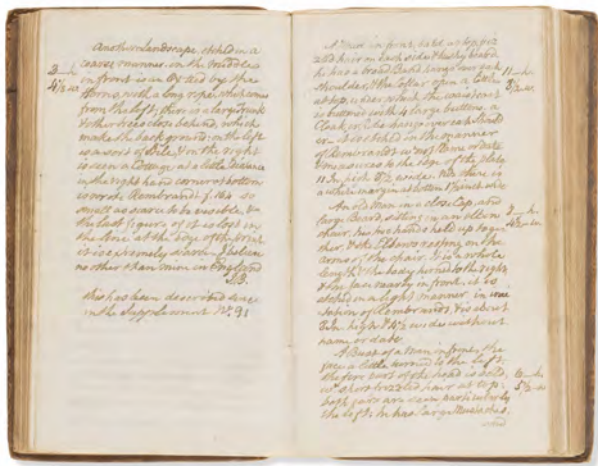 Another Landscape, etched in a
3 — h
coarse manner. in the middle
4 1/2 w
in front is an Ox tied by the
Horns, with a long rope, that comes
from the left, there is a large trunk
& other trees close behind, which
make the back ground; on the left
is a sort of Dile, & on the right
is seen a Cottage at a little distance
in the right hand corner at bottom
is wrote Rembrandt f. 164 so
small as scarce to be visible, &
the last figure of it is lost in
the line at the edge of the print
it is extremely scarce I believe
no other than mine in England
this has been described since
in the Supplement No. 91
A Head in front, bald at top
hair on each side & bushy beard
he has a broad Band hanging over each
11 — h
shoulder, & the Collar open a little
8 1/2 w
at top, under which the waistcoat
is button'd with 4 large buttons, a
Cloak over
it is etched in the manner
of Rembrandt wt. out Name or date
& measures to the edge of the plate
11 In. high 8 1/2 wide. NB there is
a white margin at bottom
An old Man in a close Cap, and
large Beard, sitting in an elbow
chair, his two hands held up toge=
ther, & the Elbows resting on the
arms of the chair. It is a whole
length, & the body turned to the right,
& the face nearly in front, it is
etched in a light manner, in imi=
tation of Rembrandt, & is about
wide without
name or date
A Bust of a Man in front, the
face a little turned to the left,
the fore part of the head is bald,
wt. short frizzled hair at top;
both ears are seen particularly
5 1/2 w
the left; he has large Mustachios,